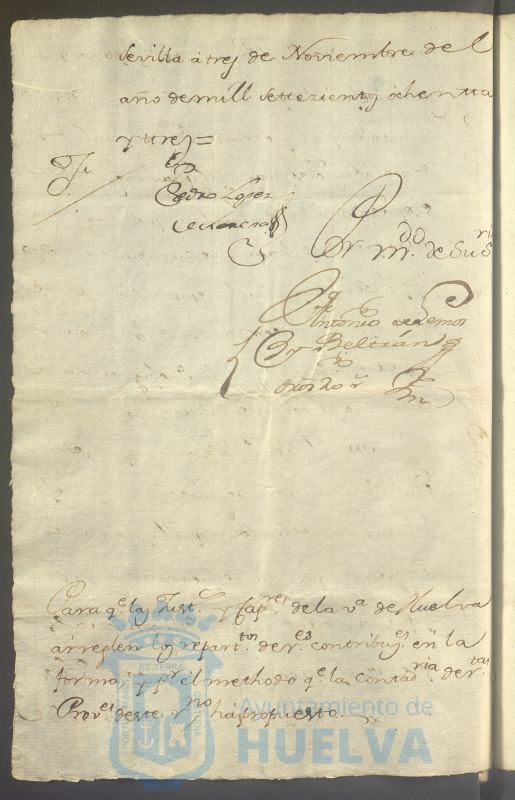 Sevilla á tres de Noviembre de el
año de mill settezientos ochentta
y ttres=
Pedro Lopez
Por m.do de Su S.ria
Antonio de Lemos
y Beltrán
Para q.e las Just.s y Cap.res de la v.a de Huelva
arreglen los repart.tos de r.es contribuy.es en la
forma, y p.r el methodo q.e la Contad.ria de r.tas
Prov.es de este r.no há propuesto.
ET TERRA
Ayuntamiento de
HUELVA